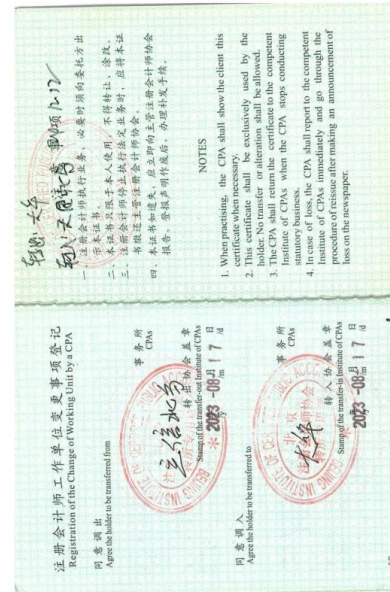 注册会计师工作单位变更事项登记
Registration of the Change of Working Unit by a CPA
同意调出
Agree the holder to be transferred from
事务所
CPAs
转出协会盖章
Stamp of the transfer-out Institute of CPAs
2023 -08月17日
同意调入
Agree the holder to be transferred to
大华
事务所
CPAs
转入协会盖章
Stamp of the transfer-in Institute of CPAs
2023 -08月17日
大华
注册会计师执行业务,必要时须向委托方出
示本证书。
二、本证书只限于本人使用,不得转让、涂改。
三、注册会计师停止执行法定业务时,应将本证
书缴还主管注册会计师协会。
四、本证书如遗失,应立即向主管注册会计师协会
报告,登报声明作废后,办理补发手续。
NOTES
1. When practising, the CPA shall show the client this
certificate when necessary.
2. This certificate shall be exclusively used by the
holder. No transfer or alteration shall be allowed.
3. The CPA shall return the certificate to the competent
Institute of CPAs when the CPA stops conducting
statutory business.
4. In case of loss, the CPA shall report to the competent
Institute of CPAs immediately and go through the
procedure of reissue after making an announcement of
loss on the newspaper.